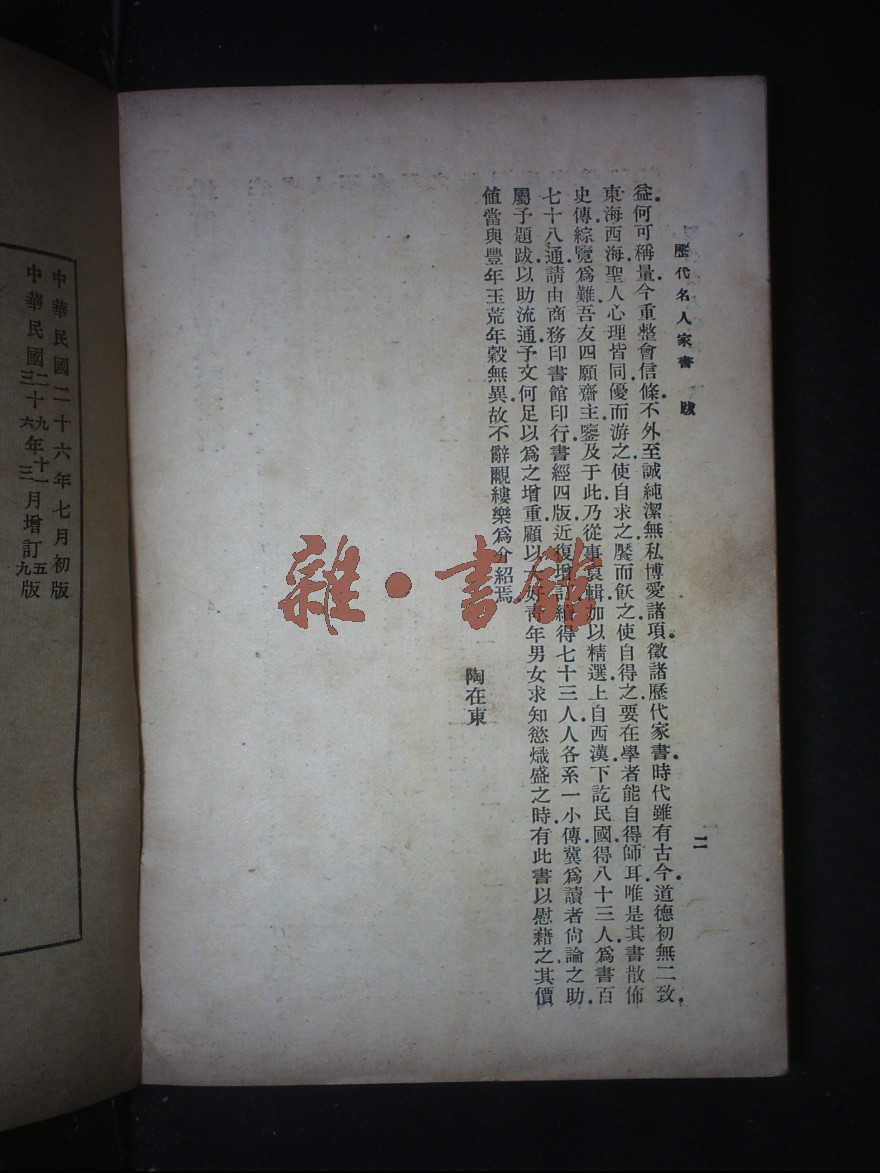 歷代名人家書　跋
二
益何可稱量今重整會信條不外至誠純潔無私博愛諸項徵諸歷代家書時代雖有古今道德初無二致
東海西海聖人心理皆同優而游之使自求之饜而飫之使自得之要在學者能自得師耳唯是其書散佈
史傳綜覽爲難吾友四願齋主鑒及于此乃從事裒輯加以精選上自西漢下訖民國得八十三人爲書百
七十八通請由商務印書館印行書經四版近復增訂續得七十三人人各系一小傳冀爲讀者尙論之助
屬予題跋以助流通予文何足以爲之增重顧以大好靑年男女求知慾熾盛之時有此書以慰藉之其價
値當與豐年玉荒年穀無異故不辭覼縷樂爲介紹焉
陶在東
雜·書館
中華民國二十六年七月初版
中華民國二十九年十一月增訂五版
三十六年三月增訂九版